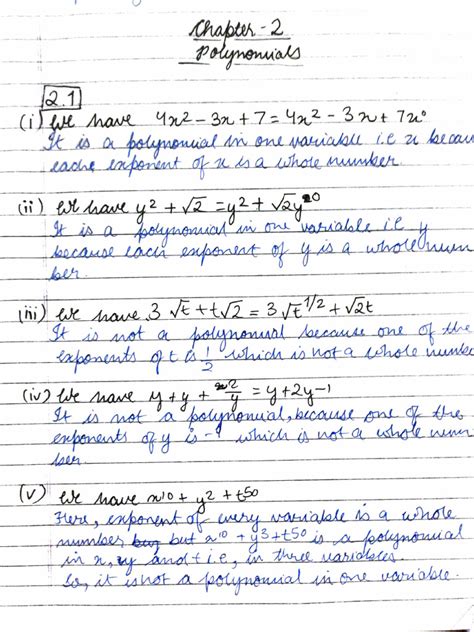 Chapter - 2
Polynomials
2.1
(i) We have 4x² - 3x + 7 = 4x² - 3x + 7x⁰
It is a polynomial in one variable i.e x becau
each exponent of x is a whole number.
(ii) We have y² + √2 = y² + √2y⁰
It is a polynomial in one variable i.e y
because each exponent of y is a whole num
ber.
(iii) We have 3√t + t√2 = 3√t^1/2 + √2t
It is not a polynomial because one of the
exponents of t is 1/2 which is not a whole numbe
(iv) We have y + y + 2/y = y + 2y-1
It is not a polynomial, because one of the
exponents of y is -1 which is not a whole num
ber.
(v) We have x¹⁰ + y² + t⁵⁰
Here, exponent of every variable is a whole
number, but x¹⁰ + y³ + t⁵⁰ is a polynomial
in x, y and t i.e, in three variables.
So, it is not a polynomial in one variable.